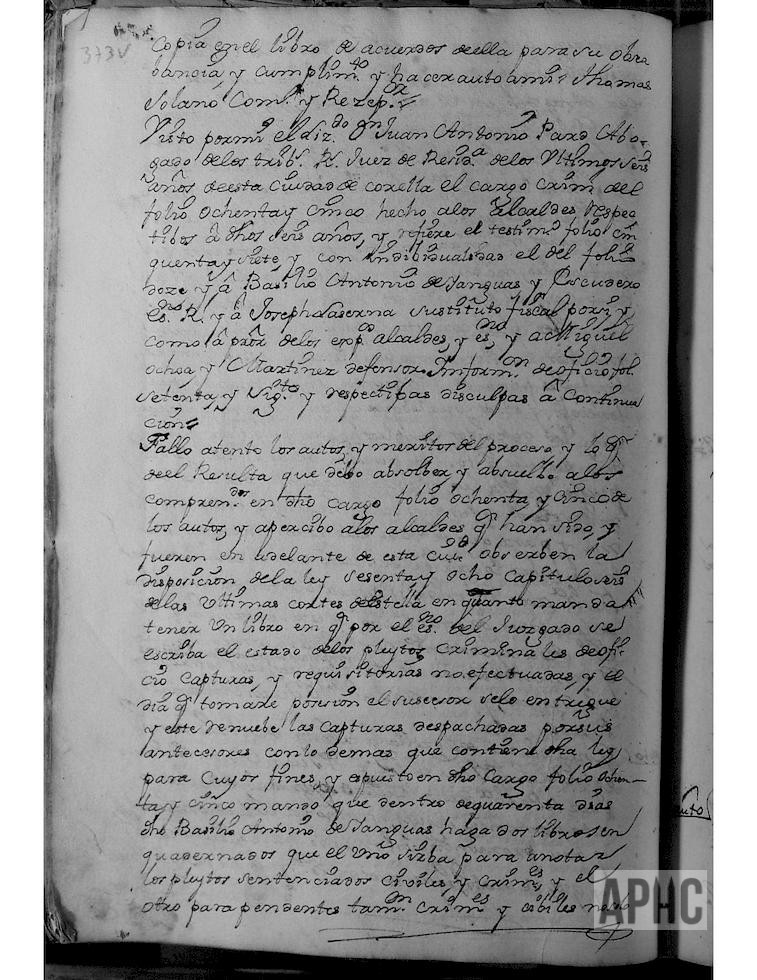 373v
copia en el libro de acuerdos de ella para su obser
bancia y cumplim.to y hacer auto a mi = Thomas
Solano Com.o y Rezep.or =
Visto por mi el liz.do Dn Juan Antonio Pardo Abo-
gado de los trib.s R.s Juez de Resid.a de los Ultimos seis
años de esta Ciudad de corella el cargo crim. del
folio ochenta y cinco hecho a los Alcaldes respec
tibos â dhos seis años, y refiere el testim.o folio cin
quenta y siete y con indibidualidad el del folio
doze y â Basilio Antonio de Sanguas y Escudero
es.no R. y â Joseph Laserna sustituto fiscal por si y
como â pror de los exp.dos alcaldes, y es.no, y a Miguel
ochoa y Martinez defensor. Inform.on de oficio fol.
setenta y Sig.tes y respectibas disculpas â continua
cion =
Fallo atento los autos, y meritos del proceso, y lo q.e
de el Resulta que debo absolber, y absuelbo a los
compren.dos en dho cargo folio ochenta y cinco de
los autos, y apercibo a los alcaldes q.e han sido, y
fueren en adelante de esta ciu.d obserben la
disposicion de la ley sesenta y ocho capitulo seis
de las Ultimas cortes de Estella en quanto manda
tener Un libro en q.e por el es.no del Juzgado se
escriba el estado de los pleytos criminales de ofi-
cio capturas, y requisitorias no efectuadas, y el
dia q.e tomare posesion el sucesor se lo entregue
y este renuebe las capturas despachadas por sus
antecesores con lo demas que contiene dha ley
para cuyos fines, y espuesto en dho cargo folio ochen-
ta, y cinco mando que dentro de quarenta dias
dho Basilio Antonio de Sanguas haga dos libros en
quadernados que el Uno sirba para anotar
los pleytos sentenciados civiles, y crim.es, y el
otro para pendentes tam.bn crim.es y cibiles
auto
APHC